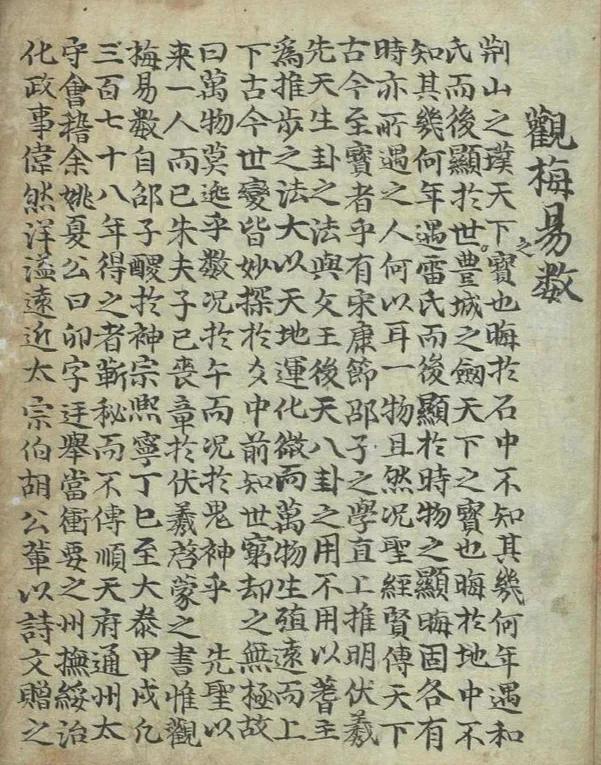 觀梅易數
荆山之璞天下之寳也晦於石中不知其幾何年遇和
氏而後顯於世豊城之劔天下之寳也晦於地中不
知其幾何年遇雷氏而後顯於時物之顯晦固各有
時亦所遇之人何以耳一物且然况聖經賢傳天下
古今至寳者乎有宋康節邵子之學直上推明伏羲
先天生卦之法與文王後天八卦之用不用以蓍主
爲推步之法大以天地運化微而萬物生殖遠而上
下古今世變皆妙探於爻中前知世窮却之無極故
曰萬物莫逃乎數况於午而况於鬼神乎 先聖以
来一人而已朱夫子已喪章於伏羲啓蒙之書惟觀
梅易數自邵子醲於神宗熙寧丁巳至大泰甲戍凢
三百七十八年得之者蘄秘而不傳順天府通州太
守會稽余姚夏公曰卯字迂舉當衝要之州撫綏治
化政事偉然洋溢遠近太宗伯胡公輩以詩文贈之